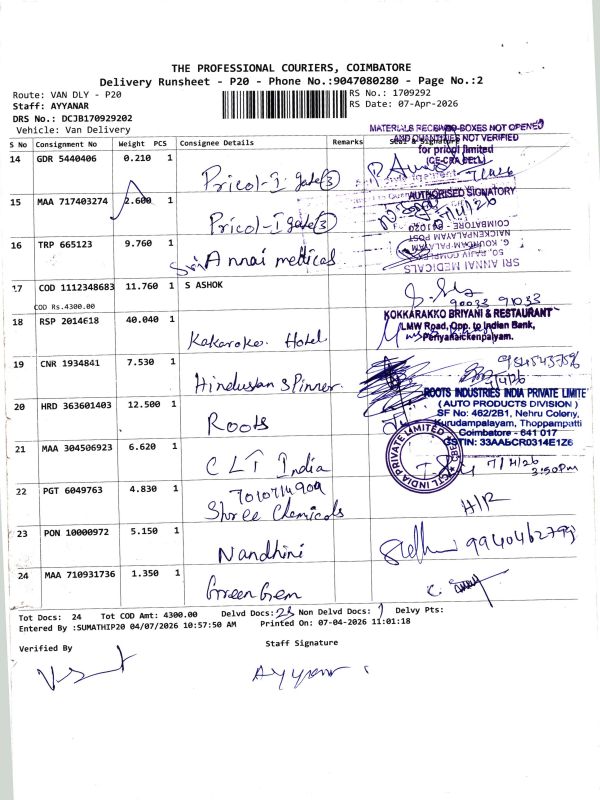 THE PROFESSIONAL COURIERS, COIMBATORE
Delivery Runsheet - P20 - Phone No.:9047080280 - Page No.:2
Route: VAN DLY - P20
RS No.: 1709292
Staff: AYYANAR
RS Date: 07-Apr-2026
DRS No.: DCJB170929202
Vehicle: Van Delivery
MATERIALS RECEIVED BOXES NOT OPENED
AND QUANTITIES NOT VERIFIED
S No Consignment No Weight PCS Consignee Details Remarks Seal & Signature
for pricol limited
14 GDR 5440406 0.210 1 Pricol-I gate(3)
AUTHORISED SIGNATORY
15 MAA 717403274 2.600 1 Pricol-I gate(3)
COIMBATORE - 641020
NAICKENPALAYAM POST
G. KOUNDAMPALAYAM
SRI ANNAI MEDICALS
16 TRP 665123 9.760 1 Sri Annai medicals
17 COD 1112348683 11.760 1 S ASHOK
90033 91033
COD Rs.4300.00
KOKKARAKKO BRIYANI & RESTAURANT
LMW Road, Opp. to Indian Bank,
Periyanaickenpalyam.
18 RSP 2014618 40.040 1 Kakaroko Hotel
19 CNR 1934841 7.530 1 Hindustan Spinner
7/4/26
ROOTS INDUSTRIES INDIA PRIVATE LIMITE
( AUTO PRODUCTS DIVISION )
SF No: 462/2B1, Nehru Colony,
Kurudampalayam, Thoppampatti
Coimbatore - 641 017
GSTIN: 33AABCR0314E1Z6
20 HRD 363601403 12.500 1 Roots
21 MAA 304506923 6.620 1 CLT India
7/4/26
3:50pm
22 PGT 6049763 4.830 1 7010714909
Shree Chemicals
H/R
23 PON 10000972 5.150 1 Nandhini
9940462799
24 MAA 710931736 1.350 1 GreenGem
Tot Docs: 24 Tot COD Amt: 4300.00 Delvd Docs: 23 Non Delvd Docs: 1 Delvy Pts:
Entered By :SUMATHIP20 04/07/2026 10:57:50 AM Printed On: 07-04-2026 11:01:18
Verified By
Staff Signature
Ayyanar